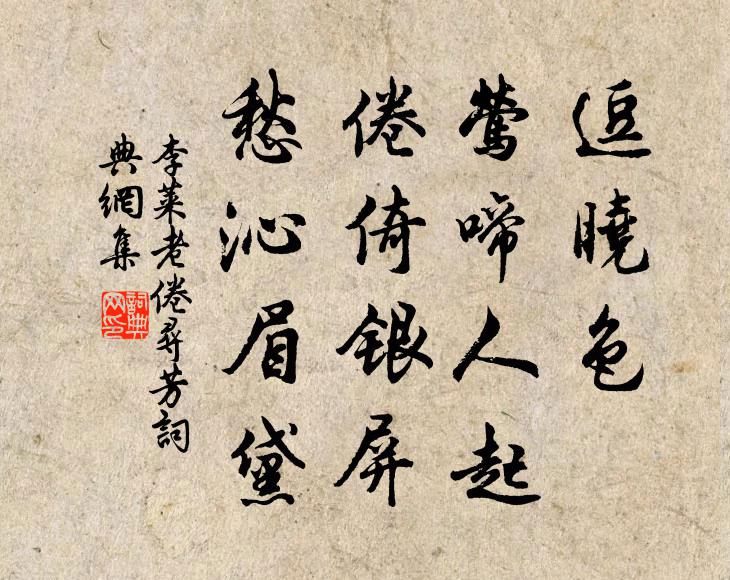 逗曉色
鶯啼人起
倦倚銀屏
愁沁眉黛
李萊老倦尋芳詞
典網集
詞典网印